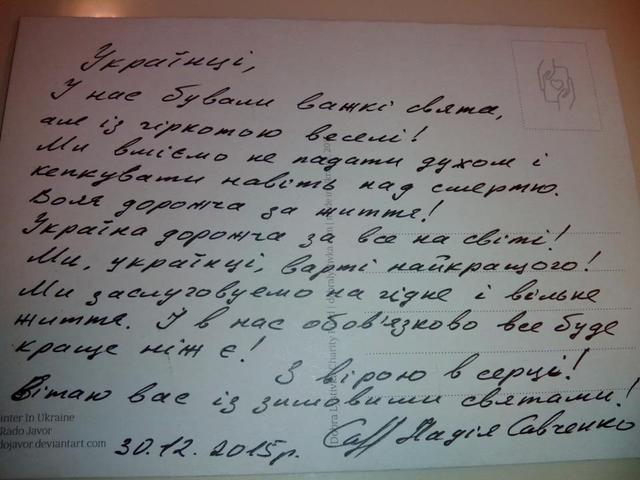 Українці,
У нас бували важкі свята,
але із гіркотою веселі!
Ми вміємо не падати духом і
кепкувати навіть над смертю.
Воля дорожча за життя!
Україна дорожча за все на світі!
Ми, українці, варті найкращого!
Ми заслуговуємо на гідне і вільне
життя. І в нас обов'язково все буде
краще ніж є!
З вірою в серці!
Вітаю вас із зимовими святами!
30.12.2015р. Надія Савченко
inter In Ukraine
Rado Javor
dojavor.deviantart.com